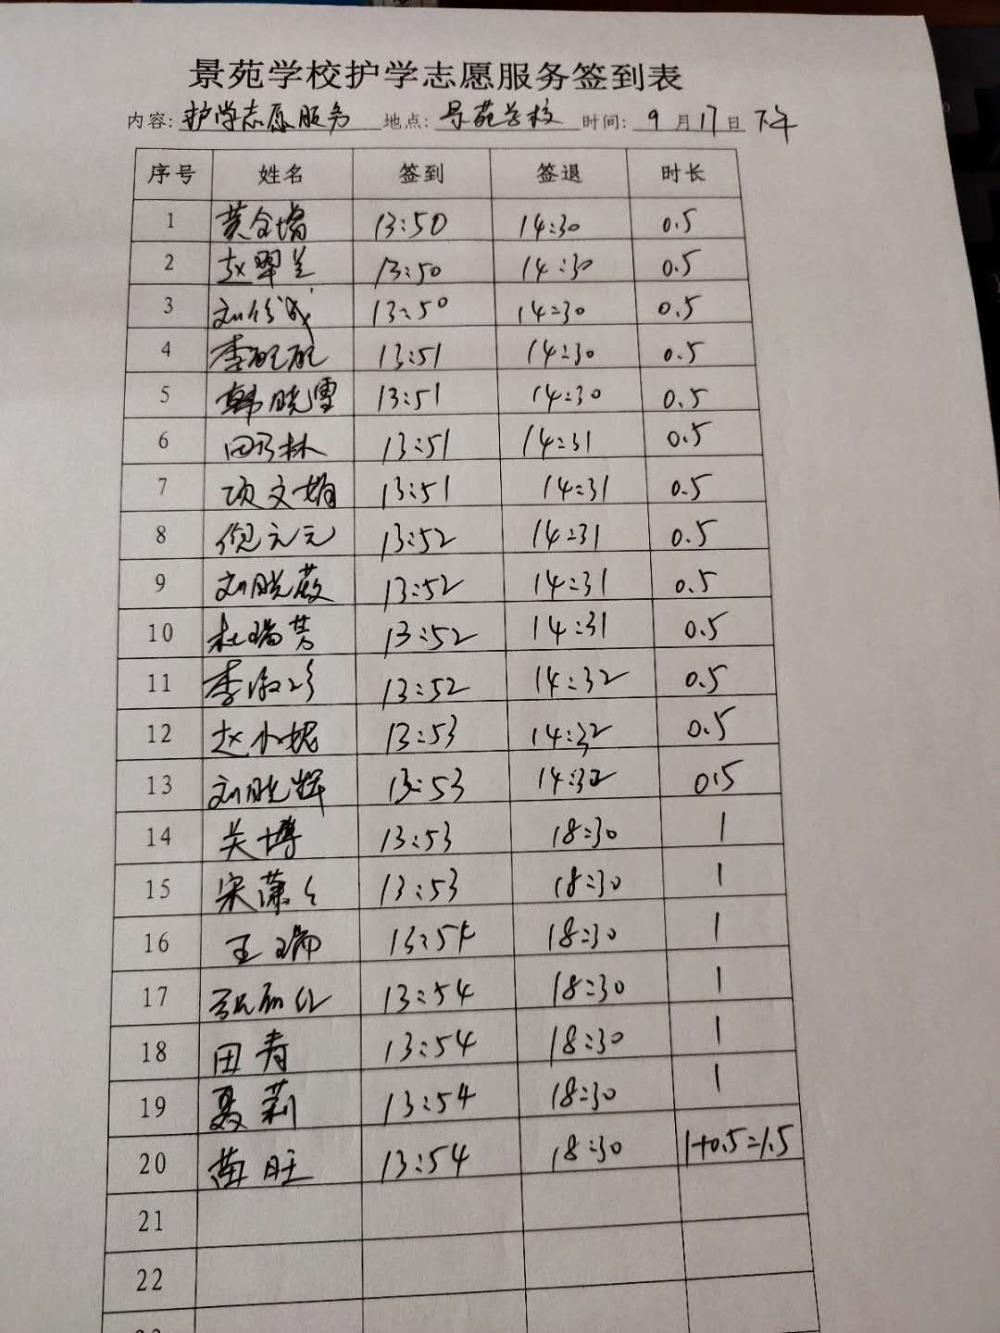 景苑学校护学志愿服务签到表
内容: 护学志愿服务 地点: 景苑学校 时间: 9 月 17 日 下午
序号 姓名 签到 签退 时长
1 13:50 14:30 0.5
2 赵翠兰 13:50 14:30 0.5
3 13:50 14:30 0.5
4 李旺旺 13:51 14:30 0.5
5 韩晓雪 13:51 14:30 0.5
6 田乃林 13:51 14:31 0.5
7 项文娟 13:51 14:31 0.5
8 倪元元 13:52 14:31 0.5
9 刘晓薇 13:52 14:31 0.5
10 杜瑞芳 13:52 14:31 0.5
11 李淑珍 13:52 14:32 0.5
12 赵小妮 13:53 14:32 0.5
13 刘晓辉 13:53 14:32 0.5
14 关博 13:53 18:30 1
15 宋潇潇 13:53 18:30 1
16 王瑞 13:54 18:30 1
17 13:54 18:30 1
18 田青 13:54 18:30 1
19 聂莉 13:54 18:30 1
20 苗旺 13:54 18:30 1+0.5=1.5
21
22